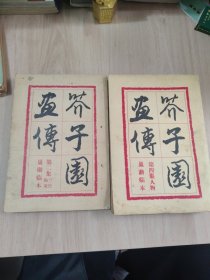 芥子園
畫傳
第集
巢勳臨本
芥子園
畫傳
第四集人物
巢勳臨本